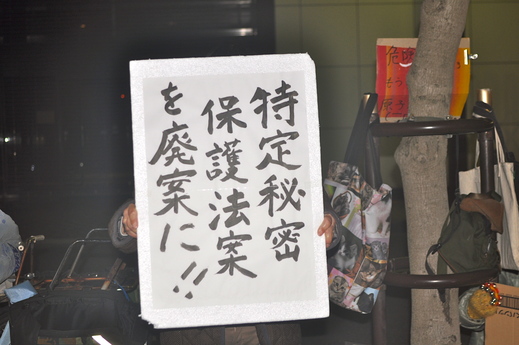 特定秘密
保護法案
を廃案に!!
危